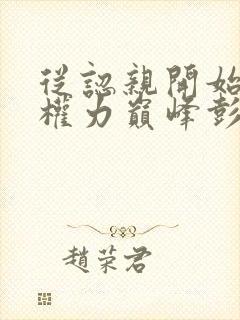 從認親開始
權力巔峰彭
趙荣君